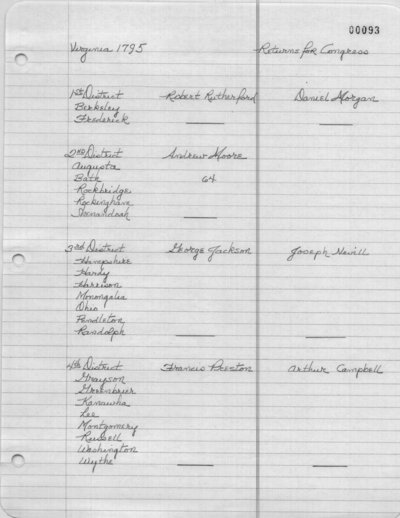 00093
Virginia 1795 Returns for Congress
1st District Robert Rutherford Daniel Morgan
Berkeley
Frederick
2nd District Andrew Moore
Augusta
Bath 64
Rockbridge
Rockingham
Shenandoah
3rd District George Jackson Joseph Nevill
Hampshire
Hardy
Harrison
Monongalia
Ohio
Pendleton
Randolph
4th District Francis Preston Arthur Campbell
Grayson
Greenbrier
Kanawha
Lee
Montgomery
Russell
Washington
Wythe